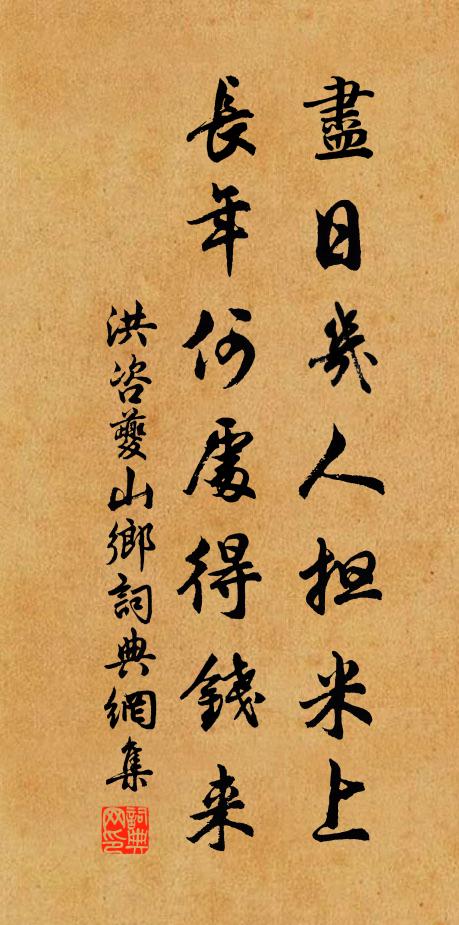 盡日幾人担米上
長年何處得錢来
洪咨夔山鄉詞典網集
詞典网印